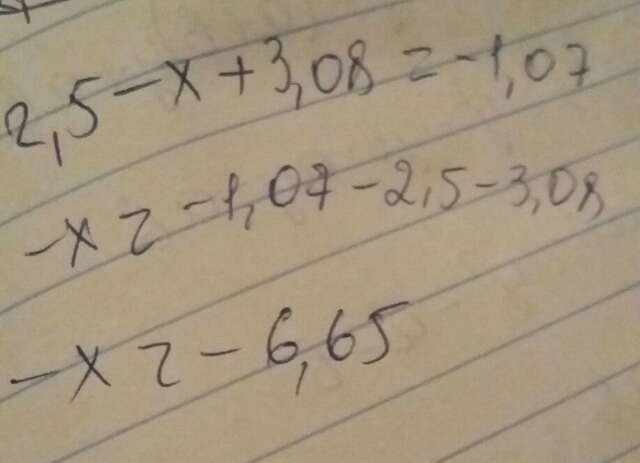 2,5-x+3,08=-1,07
-x=-1,07-2,5-3,08
-x=-6,65